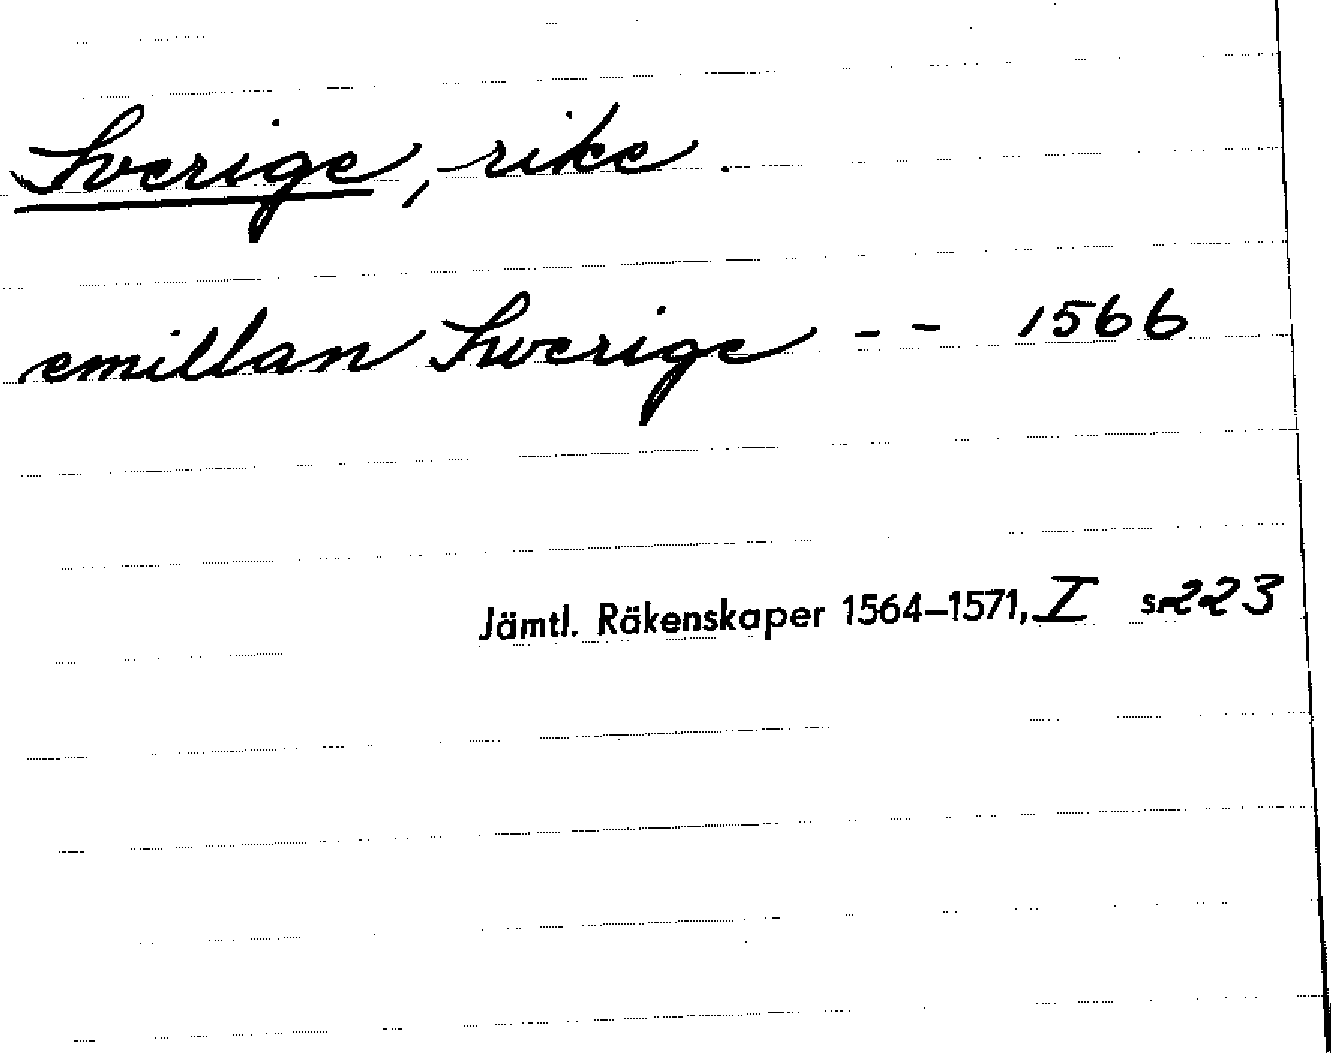 Sverige, rike
emillan Sverige - - 1566
Jämtl. Räkenskaper 1564–1571, I s. 223